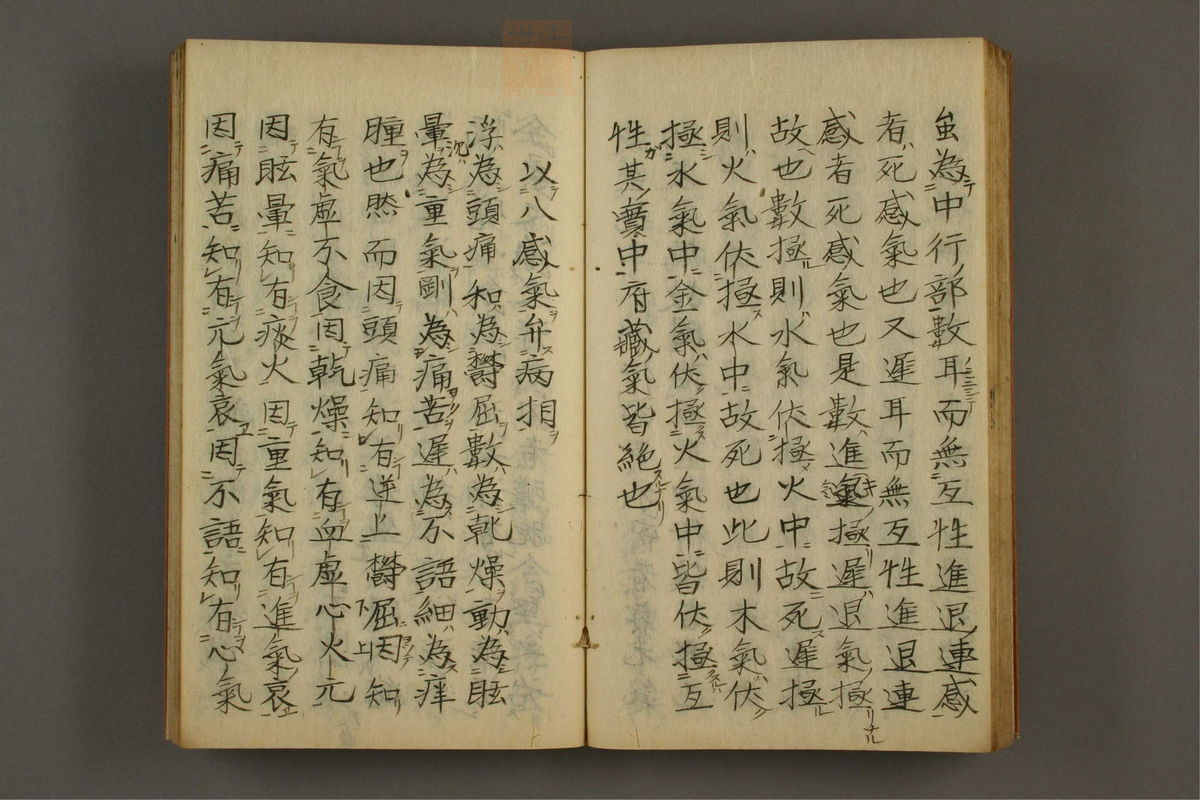 虽為中行部數耳而無互性進退連感
者死感氣也又遲耳而無互性進退連
感者死感氣也是數進氣極遲退氣極
故也數極則水氣伏極火中故死遲極
則火氣伏極水中故死也此則木氣伏
極水氣中金氣伏極火氣中皆伏極互
性其實中府藏氣皆絕也
以八感氣弁病相
浮為頭痛和為鬱屈數為乾燥動為眩
暈沉為重氣剛為痛苦遲為不語細為痒
腫也然而因頭痛知有逆上鬱屈因知
有氣虛不食因乾燥知有血虛心火元
因眩暈知有痰火因重氣知有進氣哀
因痛苦知有元氣哀因不語知有心氣